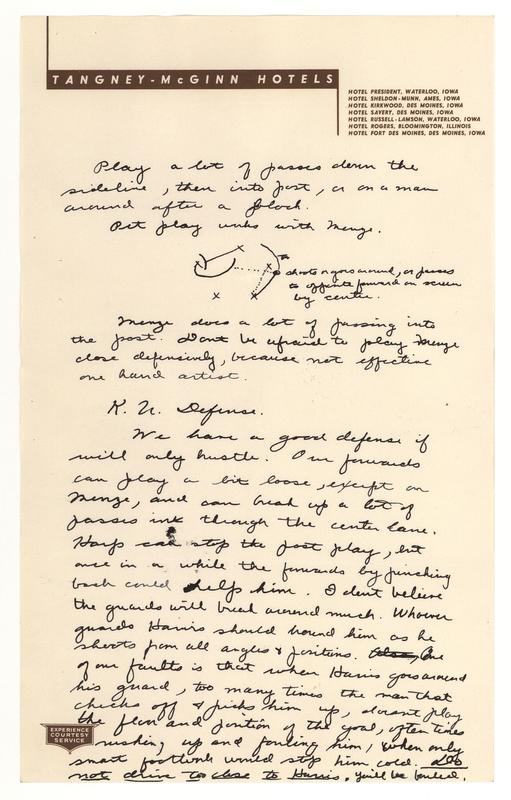 TANGNEY-McGINN HOTELS
HOTEL PRESIDENT, WATERLOO, IOWA
HOTEL SHELDON-MUNN, AMES, IOWA
HOTEL KIRKWOOD, DES MOINES, IOWA
HOTEL SAVERY, DES MOINES, IOWA
HOTEL RUSSELL-LAMSON, WATERLOO, IOWA
HOTEL ROGERS, BLOOMINGTON, ILLINOIS
HOTEL FORT DES MOINES, DES MOINES, IOWA
Play a lot of passes down the
sideline, then into post, or on a man
around after a block.
Pet play works with Menze.
shoots or goes around, or passes
to opposite forward on screen
by center.
Menze does a lot of passing into
the post. Don't be afraid to play Menze
close defensively, because not effective
one hand artist.
K. U. Defense.
We have a good defense if
will only hustle. Our forwards
can play a bit loose, except on
Menze, and can break up a lot of
passes in through the center lane.
Harp can stop the post play, but
once in a while the forwards by pinching
back could help him. I don't believe
the guards will break around much. Whoever
guards Harris should hound him as he
shoots from all angles & positions. Also, One
of our faults is that when Harris goes around
his guard, too many times the man that
checks off & picks him up, doesn't play
the floor and position of the goal, often times
rushing up and fouling him, when only
smart footwork would stop him cold. Do
not drive too close to Harris. You'll be fouled.
EXPERIENCE
COURTESY
SERVICE